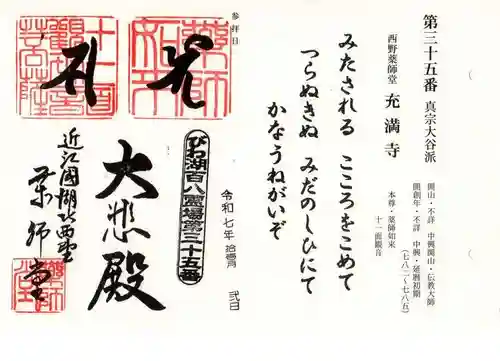 第三十五番 真宗大谷派
開山・不詳 中興開山・伝教大師
開創年・不詳 中興・延暦初期
(七八二~七八五)
西野薬師堂 充満寺
本尊・薬師如来
十一面観音
みたされる こころをこめて
つらぬきぬ みだのしひにて
かなうねがいぞ
参拝日
令和七年 拾壱月 弐日
びわ湖百八霊場第三十五番
薬師如来
十一面観世音菩薩
大悲殿
近江國湖北西野
薬師堂